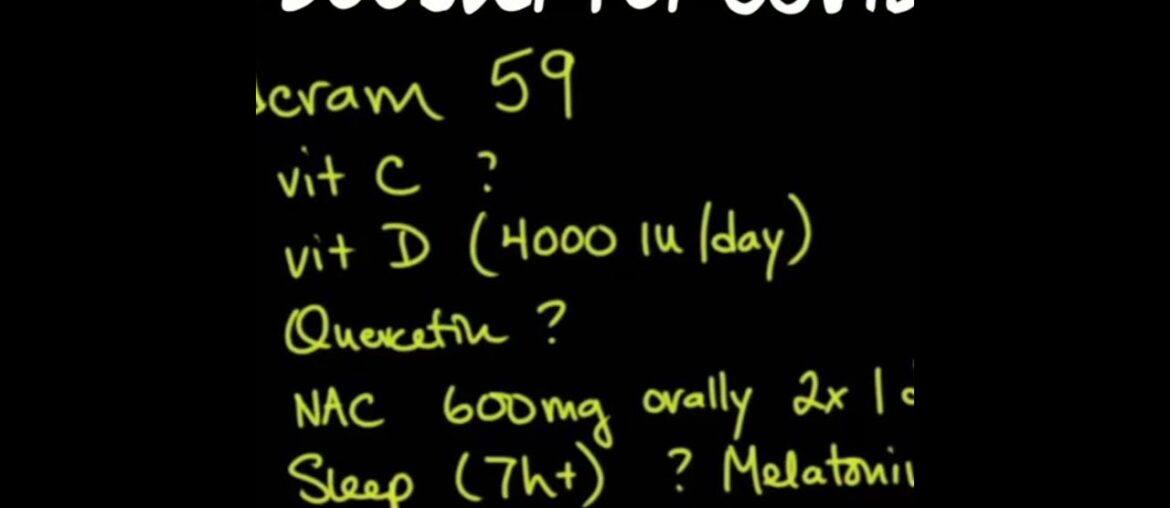 cram 59
vit C ?
vit D (4000 IU/day)
Quercetin ?
NAC 600mg orally 2x/
Sleep (7h+) ? Melatoni